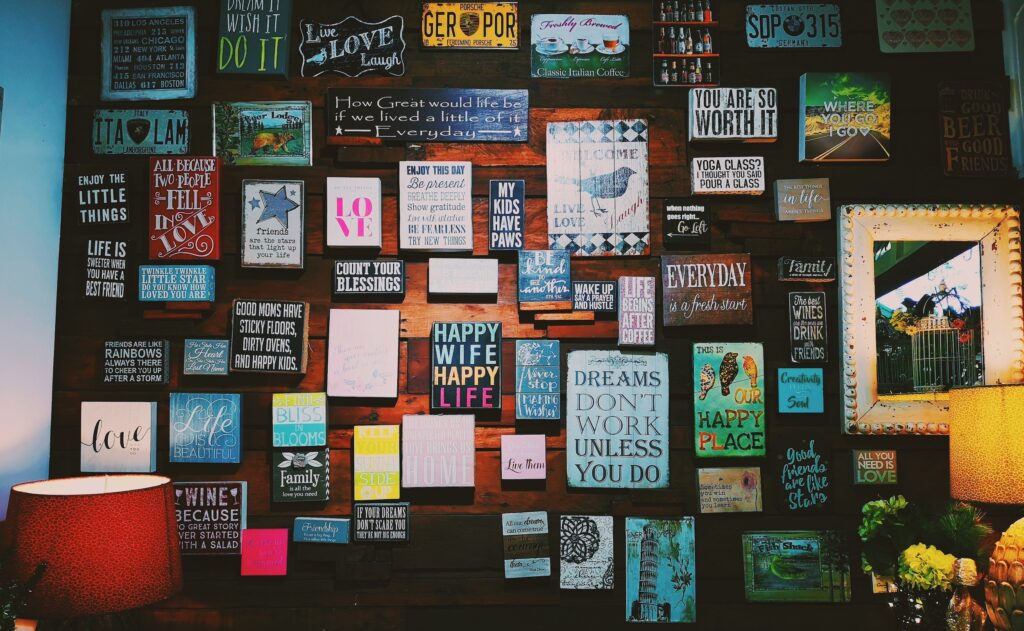 310 LOS ANGELES
CHICAGO
212 NEW YORK
404 ATLANTA
HOUSTON 713
415 SAN FRANCISCO
DREAM IT
WISH IT
DO IT
Live
LOVE
Laugh
PORSCHE
GER POR
FERDINAND PORSCHE
Freshly Brewed
Classic Italian Coffee
SDP 315
GERMANY
ITALY
ITA LAM
LAMBORGHINI
Bear Lodge
How Great would life be
if we lived a little of it
Everyday
YOU ARE SO
WORTH IT
WHERE
YOU GO
I GO
DRINK
GOOD
BEER
GOOD
FRIENDS
ENJOY THE
LITTLE
THINGS
ALL BECAUSE
TWO PEOPLE
FELL
IN
LOVE
friends
are the stars
that light up
your life
LO
VE
ENJOY THIS DAY
Be present
BREATHE DEEPLY
Show gratitude
BE FEARLESS
TRY NEW THINGS
MY
KIDS
HAVE
PAWS
WELCOME
LIVE
LOVE
laugh
YOGA CLASS?
I THOUGHT YOU SAID
POUR A CLASS
when nothing
goes right..
Go Left
THE BEST THINGS
IN LIFE
LIFE IS
SWEETER WHEN
YOU HAVE A
BEST FRIEND
TWINKLE TWINKLE
LITTLE STAR
DO YOU KNOW HOW
LOVED YOU ARE
COUNT YOUR
BLESSINGS
BE
kind to
one
another
WAKE UP
SAY A PRAYER
AND HUSTLE
LIFE
BEGINS
AFTER
COFFEE
EVERYDAY
is a fresh start
Family
GOOD MOMS HAVE
STICKY FLOORS,
DIRTY OVENS,
AND HAPPY KIDS.
The best
WINES
are the ones we
DRINK
with
FRIENDS
FRIENDS ARE LIKE
RAINBOWS
ALWAYS THERE
TO CHEER YOU UP
AFTER A STORM
Home
is where the
Heart
is
HAPPY
WIFE
HAPPY
LIFE
Never
stop
MAKING
Wishes
DREAMS
DON'T
WORK
UNLESS
YOU DO
THIS IS
OUR
HAPPY
PLACE
Creativity
Soul
love
YOU GO
Life
IS
BEAUTIFUL
BLISS
IN
BLOOMS
Family
is all the
love you need
YOUR
SUNNY
SIDE
OUT
BRINGS
US
HOME
Live them
Sometimes
you win
and sometimes
Good
friends
are like
Stars
ALL YOU
NEED IS
LOVE
WINE
BECAUSE
NO GREAT STORY
EVER STARTED
WITH A SALAD
Friendship
IF YOUR DREAMS
DON'T SCARE YOU
THEY'RE NOT BIG ENOUGH
All our dreams
can come true
Fish Shack